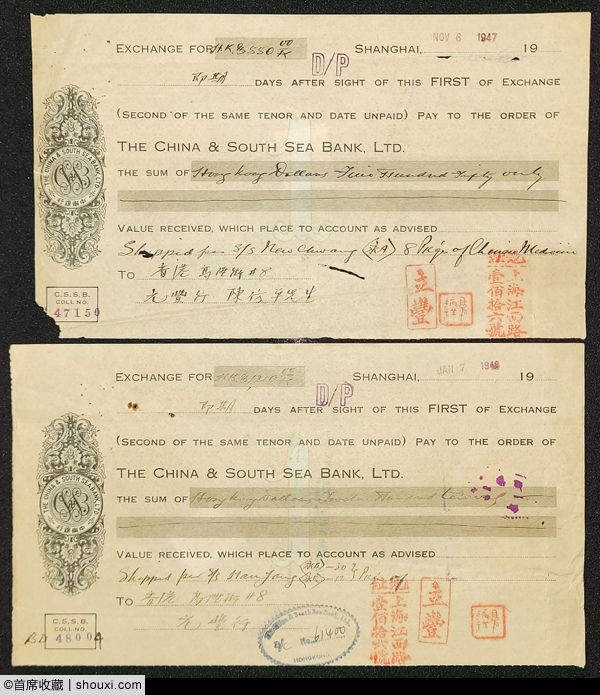 NOV 6 1947
EXCHANGE FOR H.K.$550 00/xx SHANGHAI, 19
D/P
即期 DAYS AFTER SIGHT OF THIS FIRST OF EXCHANGE
(SECOND OF THE SAME TENOR AND DATE UNPAID) PAY TO THE ORDER OF
THE CHINA & SOUTH SEA BANK, LTD.
THE SUM OF Hongkong Dollars Five Hundred Fifty only
VALUE RECEIVED, WHICH PLACE TO ACCOUNT AS ADVISED
Shipped per S/S New Chwang 8 Pkgs of Chinese Medicine
TO 香港 高陞街 #8
元豐行 陳 平先生
立豐
上海江西路
壹佰拾六號
THE CHINA & SOUTH SEA BANK, LTD.
C.S.S.B.
COLL NO.
47150
JAN 7 1948
EXCHANGE FOR H.K.$ SHANGHAI, 19
D/P
即期 DAYS AFTER SIGHT OF THIS FIRST OF EXCHANGE
(SECOND OF THE SAME TENOR AND DATE UNPAID) PAY TO THE ORDER OF
THE CHINA & SOUTH SEA BANK, LTD.
THE SUM OF Hongkong Dollars Hundred only
VALUE RECEIVED, WHICH PLACE TO ACCOUNT AS ADVISED
Shipped per S/S
TO 香港 高陞街 #8
元豐行
立豐
上海江西路
壹佰拾六號
China & South Sea Bank, Ltd.
B/C No. 61400
HONGKONG
THE CHINA & SOUTH SEA BANK, LTD.
C.S.S.B.
COLL NO.
48004
©首席收藏 | shouxi.com